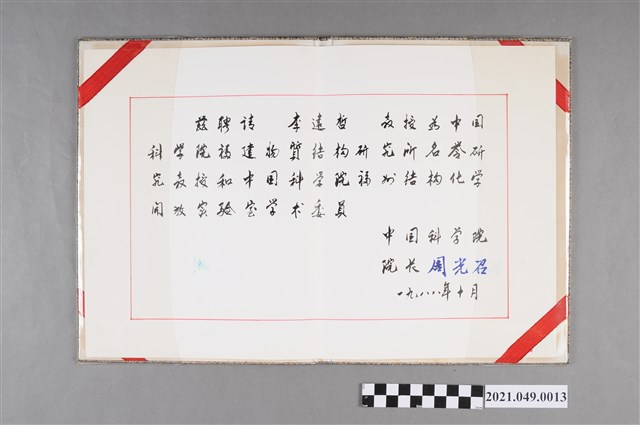 兹聘请 李远哲 教授为中国
科学院福建物質结构研究所名誉研
究教授和中国科学院福州结构化学
开放实验室学术委員
中国科学院
院长 周光召
一九八八年十月
2021.049.0013